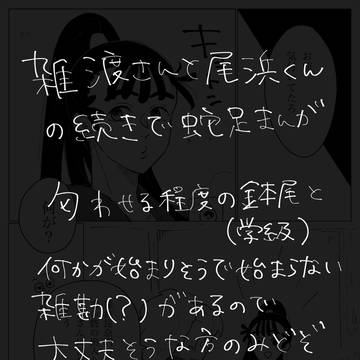 雑渡さんと尾浜くん
の続きで蛇足まんが
匂わせる程度の鉢尾と
(学級)
何かが始まりそうで始まらない
雑勘(?)があるので
大丈夫そうな方のみどぞ
何が?